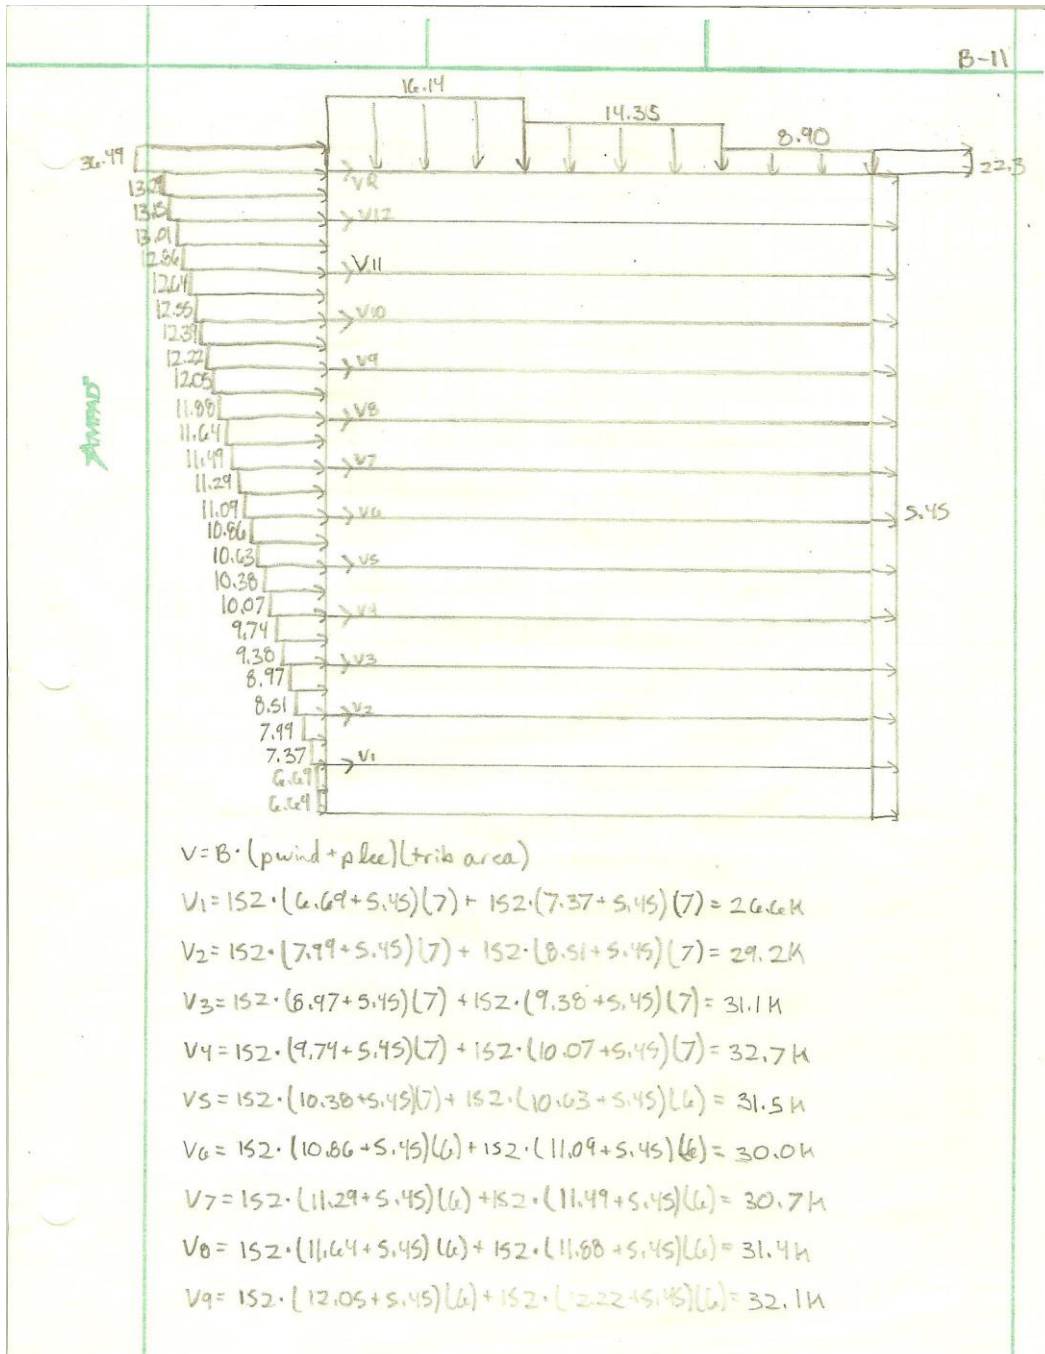 B-11
16.14
14.35
8.90
36.49
22.3
VR
13.29
13.15
V12
13.01
12.86
V11
12.64
12.55
V10
12.39
12.22
V9
12.05
11.88
V8
11.64
11.49
V7
11.29
11.09
V6
5.45
10.86
10.63
V5
10.38
10.07
V4
9.74
9.38
V3
8.97
8.51
V2
7.99
7.37
V1
6.69
6.64
AMPAD
V=B·(pwind+plee)(trib area)
V1=152·(6.69+5.45)(7)+152·(7.37+5.45)(7)=26.6K
V2=152·(7.99+5.45)(7)+152·(8.51+5.45)(7)=29.2K
V3=152·(8.97+5.45)(7)+152·(9.38+5.45)(7)=31.1K
V4=152·(9.74+5.45)(7)+152·(10.07+5.45)(7)=32.7K
V5=152·(10.38+5.45)(7)+152·(10.63+5.45)(6)=31.5K
V6=152·(10.86+5.45)(6)+152·(11.09+5.45)(6)=30.0K
V7=152·(11.29+5.45)(6)+152·(11.49+5.45)(6)=30.7K
V8=152·(11.64+5.45)(6)+152·(11.88+5.45)(6)=31.4K
V9=152·(12.05+5.45)(6)+152·(12.22+5.45)(6)=32.1K